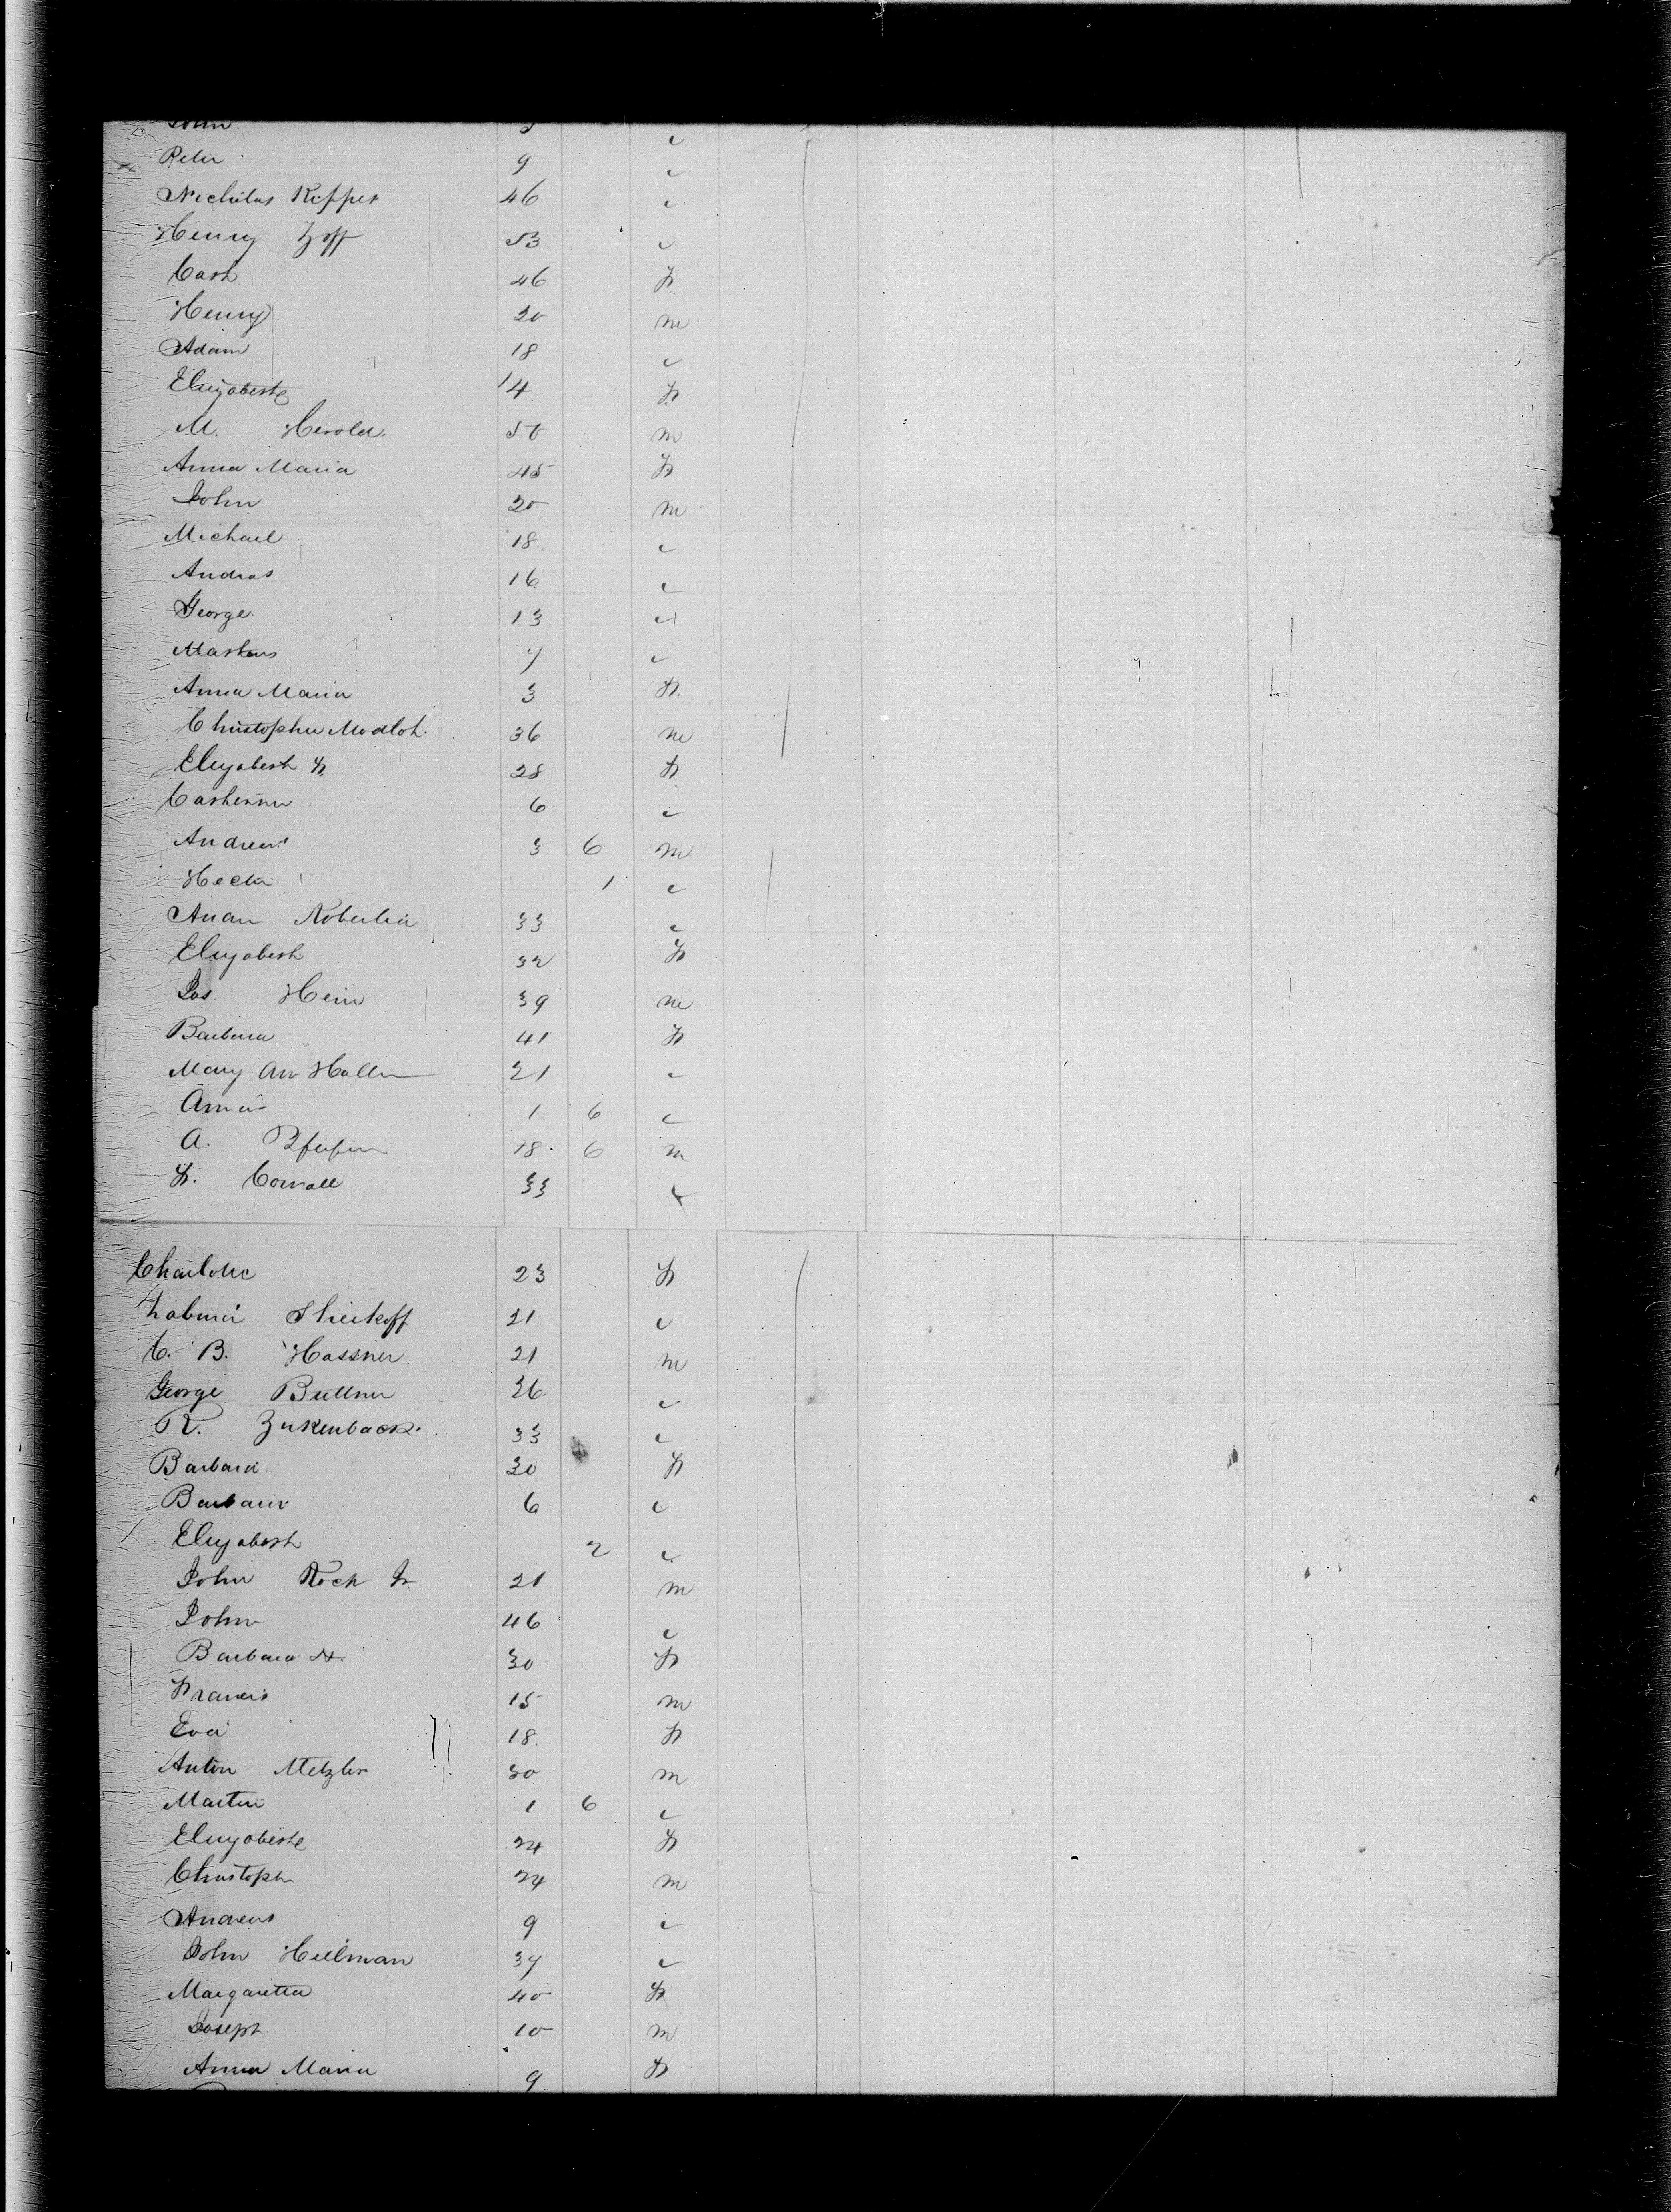 John
Peter 9 "
Nicholas Kipper 46 "
Henry Zoff 53 "
Cath 46 f
Henry 20 m
Adam 18 "
Elizabeth 14 f
M. Herold 50 m
Anna Maria 45 f
John 20 m
Michael 18 "
Andras 16 "
George 13 "
Markus 7 "
Anna Maria 3 f
Christopher 36 m
Elizabeth F. 28 f
Catherine 6 "
Andreas 3 6 m
1 "
33 "
Elizabeth 32 f
Jos. Hein 39 m
Barbara 41 f
Mary Ann Haller 21 "
Anna 1 6 "
A. 18 6 m
F. 33 "
Charlotte 23 f
21 "
C. B. Hassner 21 m
George Buttner 26 "
R. Zukenback 33 "
Barbara 30 f
Barbara 6 "
Elizabeth 2 "
John Koch Jr. 21 m
John 46 "
Barbara 30 f
Francis 15 m
Eva 18 f
Anton Metzler 30 m
Martin 1 6 "
Elizabeth 24 f
Christoph 24 m
Andreas 9 "
John Hielman 37 "
Margaretta 40 f
Joseph 10 m
Anna Maria 9 f